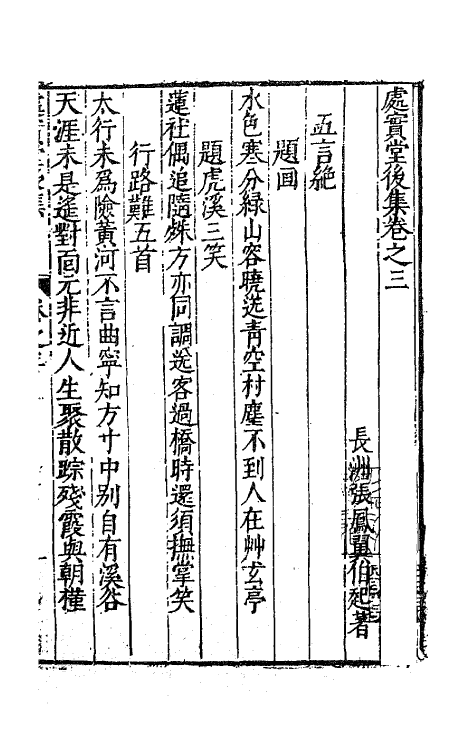 處實堂後集卷之三
長洲張鳳翼伯起著
五言絶
題画
水色寒分綠山容曉送青空村塵不到人在艸玄亭
題虎溪三笑
蓮社偶追隨殊方亦同調送客過橋時還須撫掌笑
行路難五首
太行未爲險黃河不言曲寧知方寸中别自有溪谷
天涯未是遙對面元非近人生聚散踪殘霞與朝槿